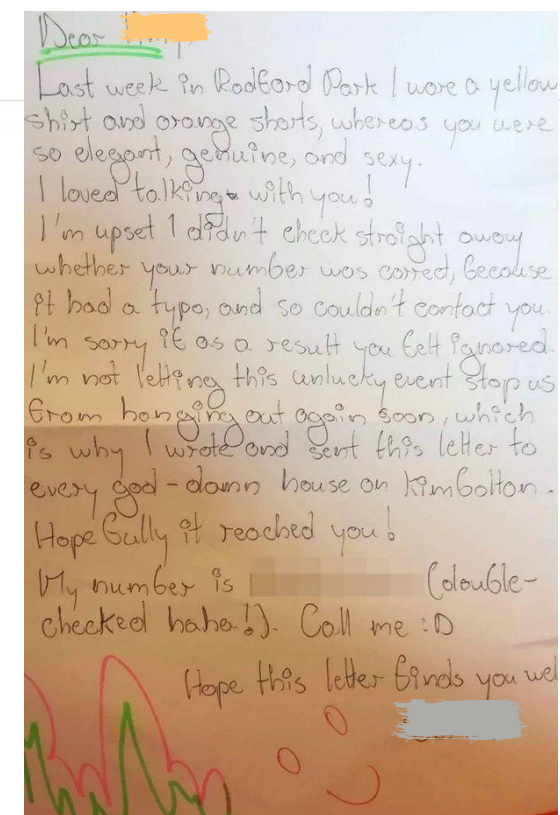 Dear
Last week in Radford Park I wore a yellow
shirt and orange shorts, whereas you were
so elegant, genuine, and sexy.
I loved talking with you!
I'm upset I didn't check straight away
whether your number was correct, because
it had a typo, and so couldn't contact you.
I'm sorry if as a result you felt ignored.
I'm not letting this unlucky event stop us
from hanging out again soon, which
is why I wrote and sent this letter to
every god-damn house on Kimbolton.
Hopefully it reached you!
My number is (double-
checked haha!). Call me :D
Hope this letter finds you wel